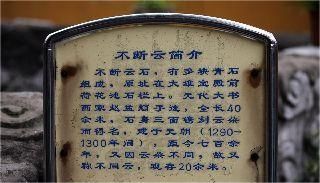 不断云简介
不断云石，有多块青石
组成，原址在大雄宝殿前
荷花池石栏上。元代大书
画家赵孟頫手迹，全长40
余米。石身三面镌刻云朵
而得名，建于元朝（1290-
1300年间），距今七百余
年，又因云朵不同，故又
称不同云，现存20余米。